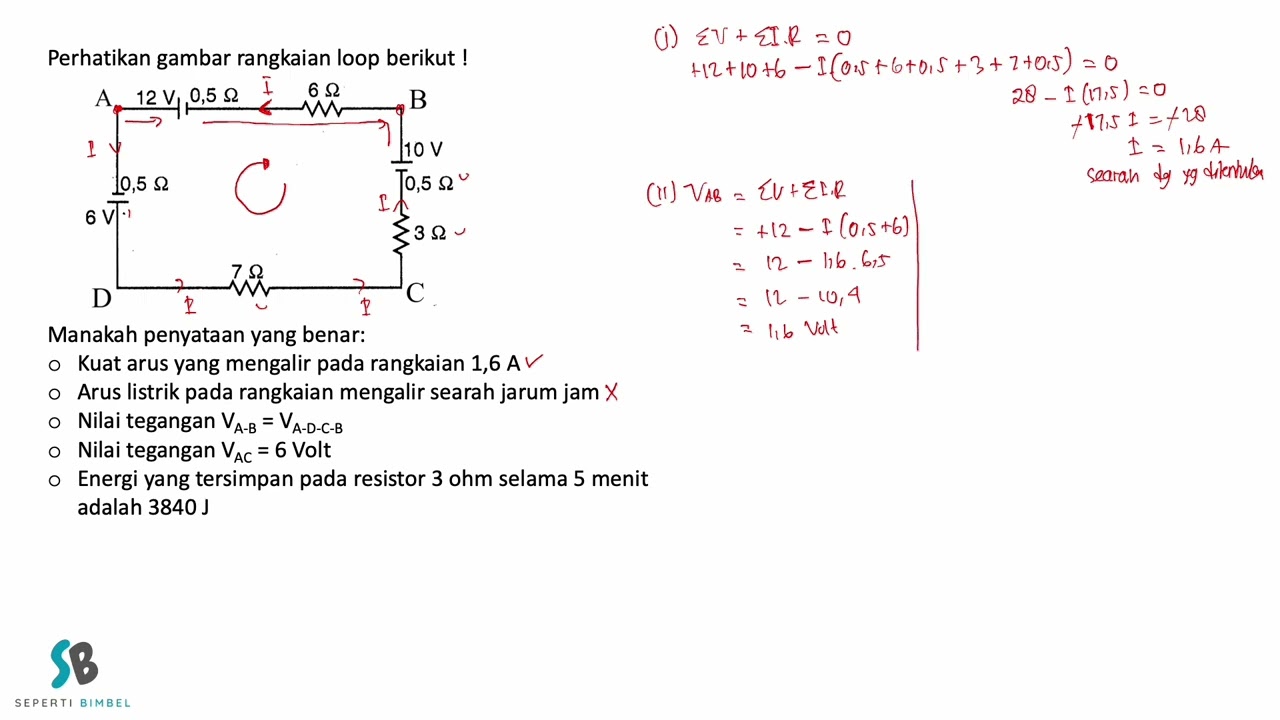 Perhatikan gambar rangkaian loop berikut !
A 12 V 0,5 Ω I 6 Ω B
I 10 V
0,5 Ω 0,5 Ω
6 V I
3 Ω
7 Ω
D I I C
Manakah penyataan yang benar:
○ Kuat arus yang mengalir pada rangkaian 1,6 A ✓
○ Arus listrik pada rangkaian mengalir searah jarum jam X
○ Nilai tegangan V_A-B = V_A-D-C-B
○ Nilai tegangan V_AC = 6 Volt
○ Energi yang tersimpan pada resistor 3 ohm selama 5 menit
adalah 3840 J
(i) ΣV + ΣI.R = 0
+12+10+6 - I(0,5+6+0,5+3+7+0,5) = 0
28 - I(17,5) = 0
+17,5 I = +28
I = 1,6 A
searah dg yg
(ii) V_AB = ΣV + ΣI.R
= +12 - I(0,5+6)
= 12 - 1,6 . 6,5
= 12 - 10,4
= 1,6 Volt
SB
SEPERTI BIMBEL